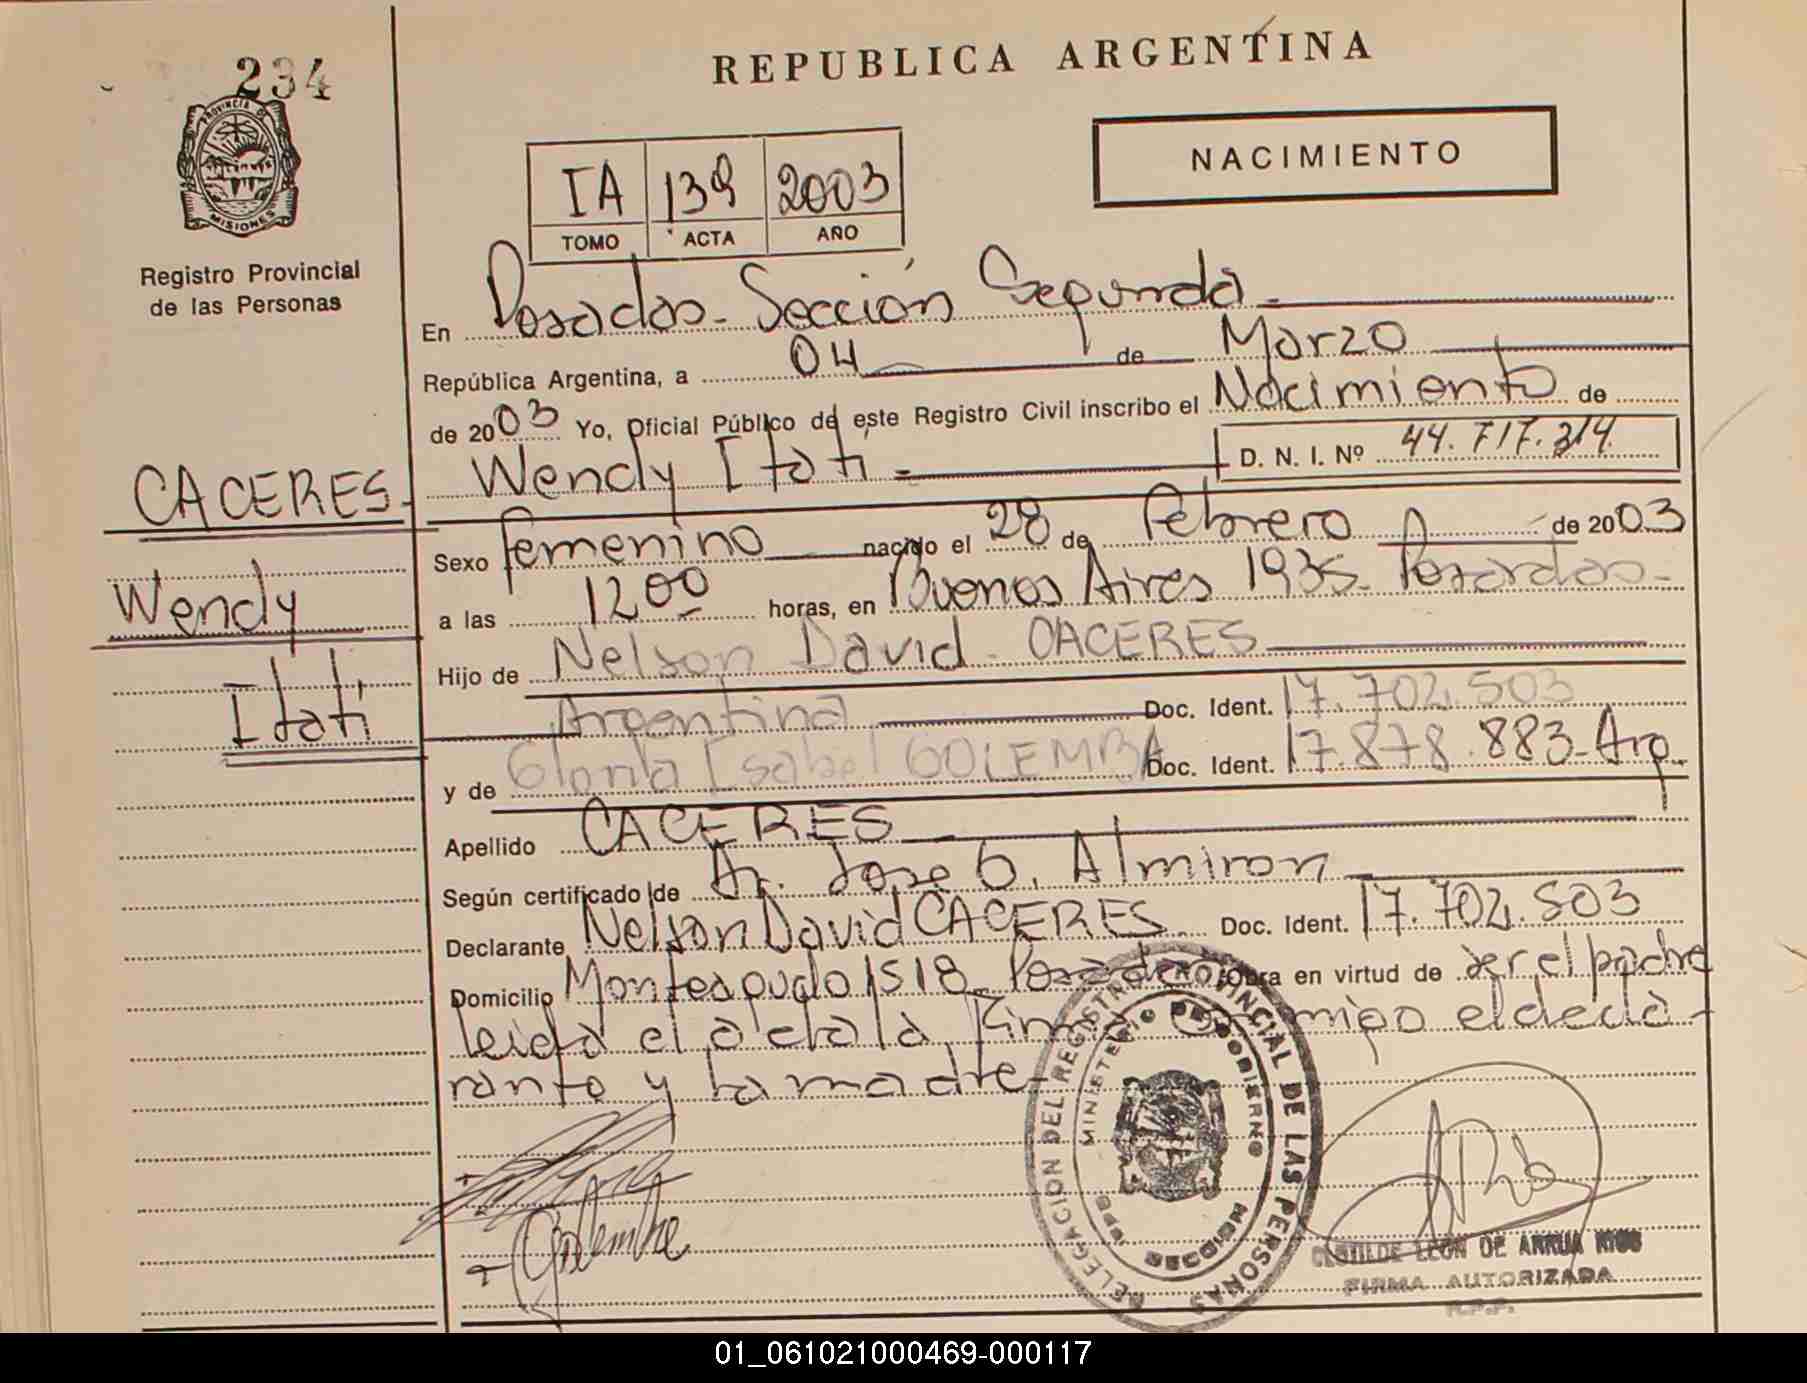 234
PROVINCIA DE
MISIONES
Registro Provincial
de las Personas
REPUBLICA ARGENTINA
NACIMIENTO
IA 139 2003
TOMO ACTA AÑO
En Posadas - Sección Segunda
República Argentina, a 04 de Marzo
de 2003 Yo, Oficial Público de este Registro Civil inscribo el Nacimiento de
Wendy Itatí D. N. I. Nº 44.717.314
CACERES
Wendy
Itatí
Sexo femenino nacido el 28 de Febrero de 2003
a las 12 00 horas, en Buenos Aires 1935 - Posadas -
Hijo de Nelson David CACERES
Argentina Doc. Ident. 17.702.503
y de Gloria Isabel GOLEMBA Doc. Ident. 17.878.883 - Arg.
Apellido CACERES
Según certificado de Dr. Jose G. Almiron
Declarante Nelson David CACERES Doc. Ident. 17.702.503
Domicilio Monteagudo 1518 Posadas Obra en virtud de ser el padre
leida el acta la firma conmigo el decla-
rante y la madre -
Golemba
DELEGACION DEL REGISTRO PROVINCIAL DE LAS PERSONAS
MINISTERIO DE GOBIERNO
CLOTILDE LEON DE ARRUA RIOS
FIRMA AUTORIZADA
R.P.P.
01_061021000469-000117